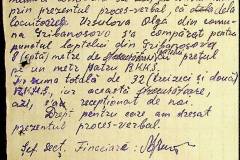 prin prezentul proces-verbal, că data dela
locuitorul Olga din comu-
na Gribanosovo s'a cumpărat pentru
punctul laptelui din Gribanosova
(șapte) metre de prețul
pe un metru patru RKKS.
în suma totală de 32 (treizeci și două)
RKKS, iar această
azi, s'au recepționat de noi.
Drept pentru care, am dresat
prezentul proces-verbal.
Șef. Secț. Financiară: